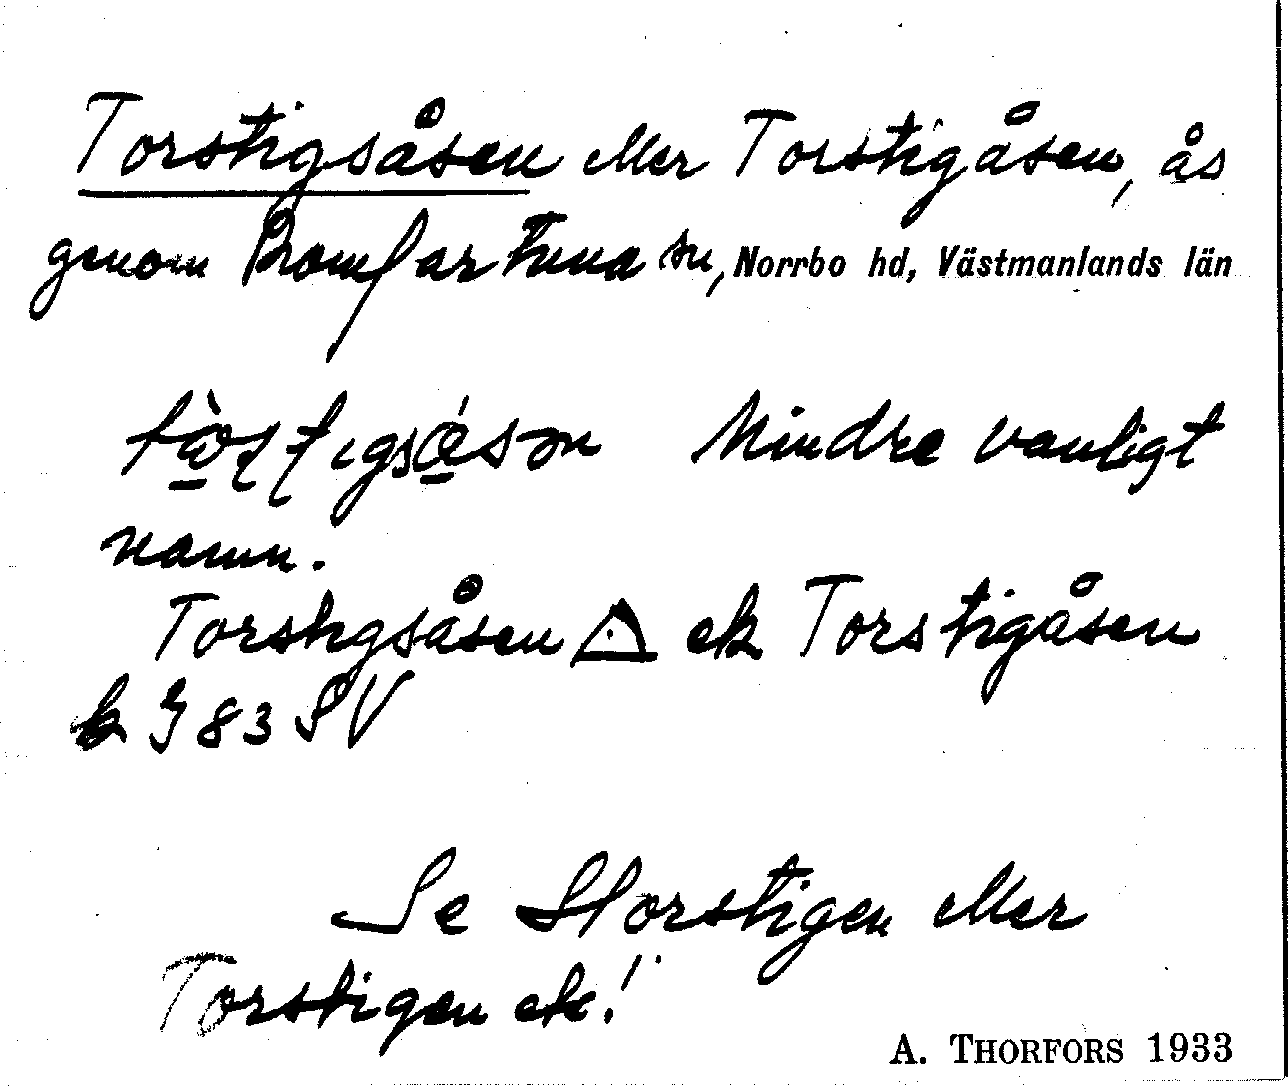 Torstigsåsen eller Torstigåsen, ås
genom Romfartuna sn, Norrbo hd, Västmanlands län
Mindre vanligt
namn.
Torstigsåsen △ ek Torstigåsen
k J 83 SV
Se Storstigen eller
Torstigen etc!
A. THORFORS 1933